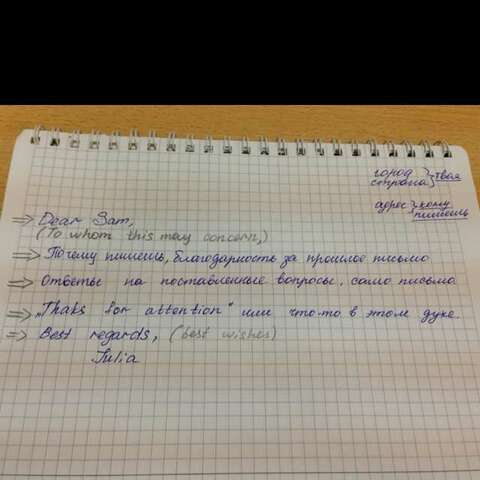 город } твоя
страна }
адрес } кому
пишешь
⇒ Dear Sam,
(To whom this may concern,)
⇒ Почему пишешь, благодарность за прошлое письмо
⇒ Ответы на поставленные вопросы, само письмо.
⇒ „Thaks for attention" или что-то в этом духе.
⇒ Best regards, (best wishes)
Julia